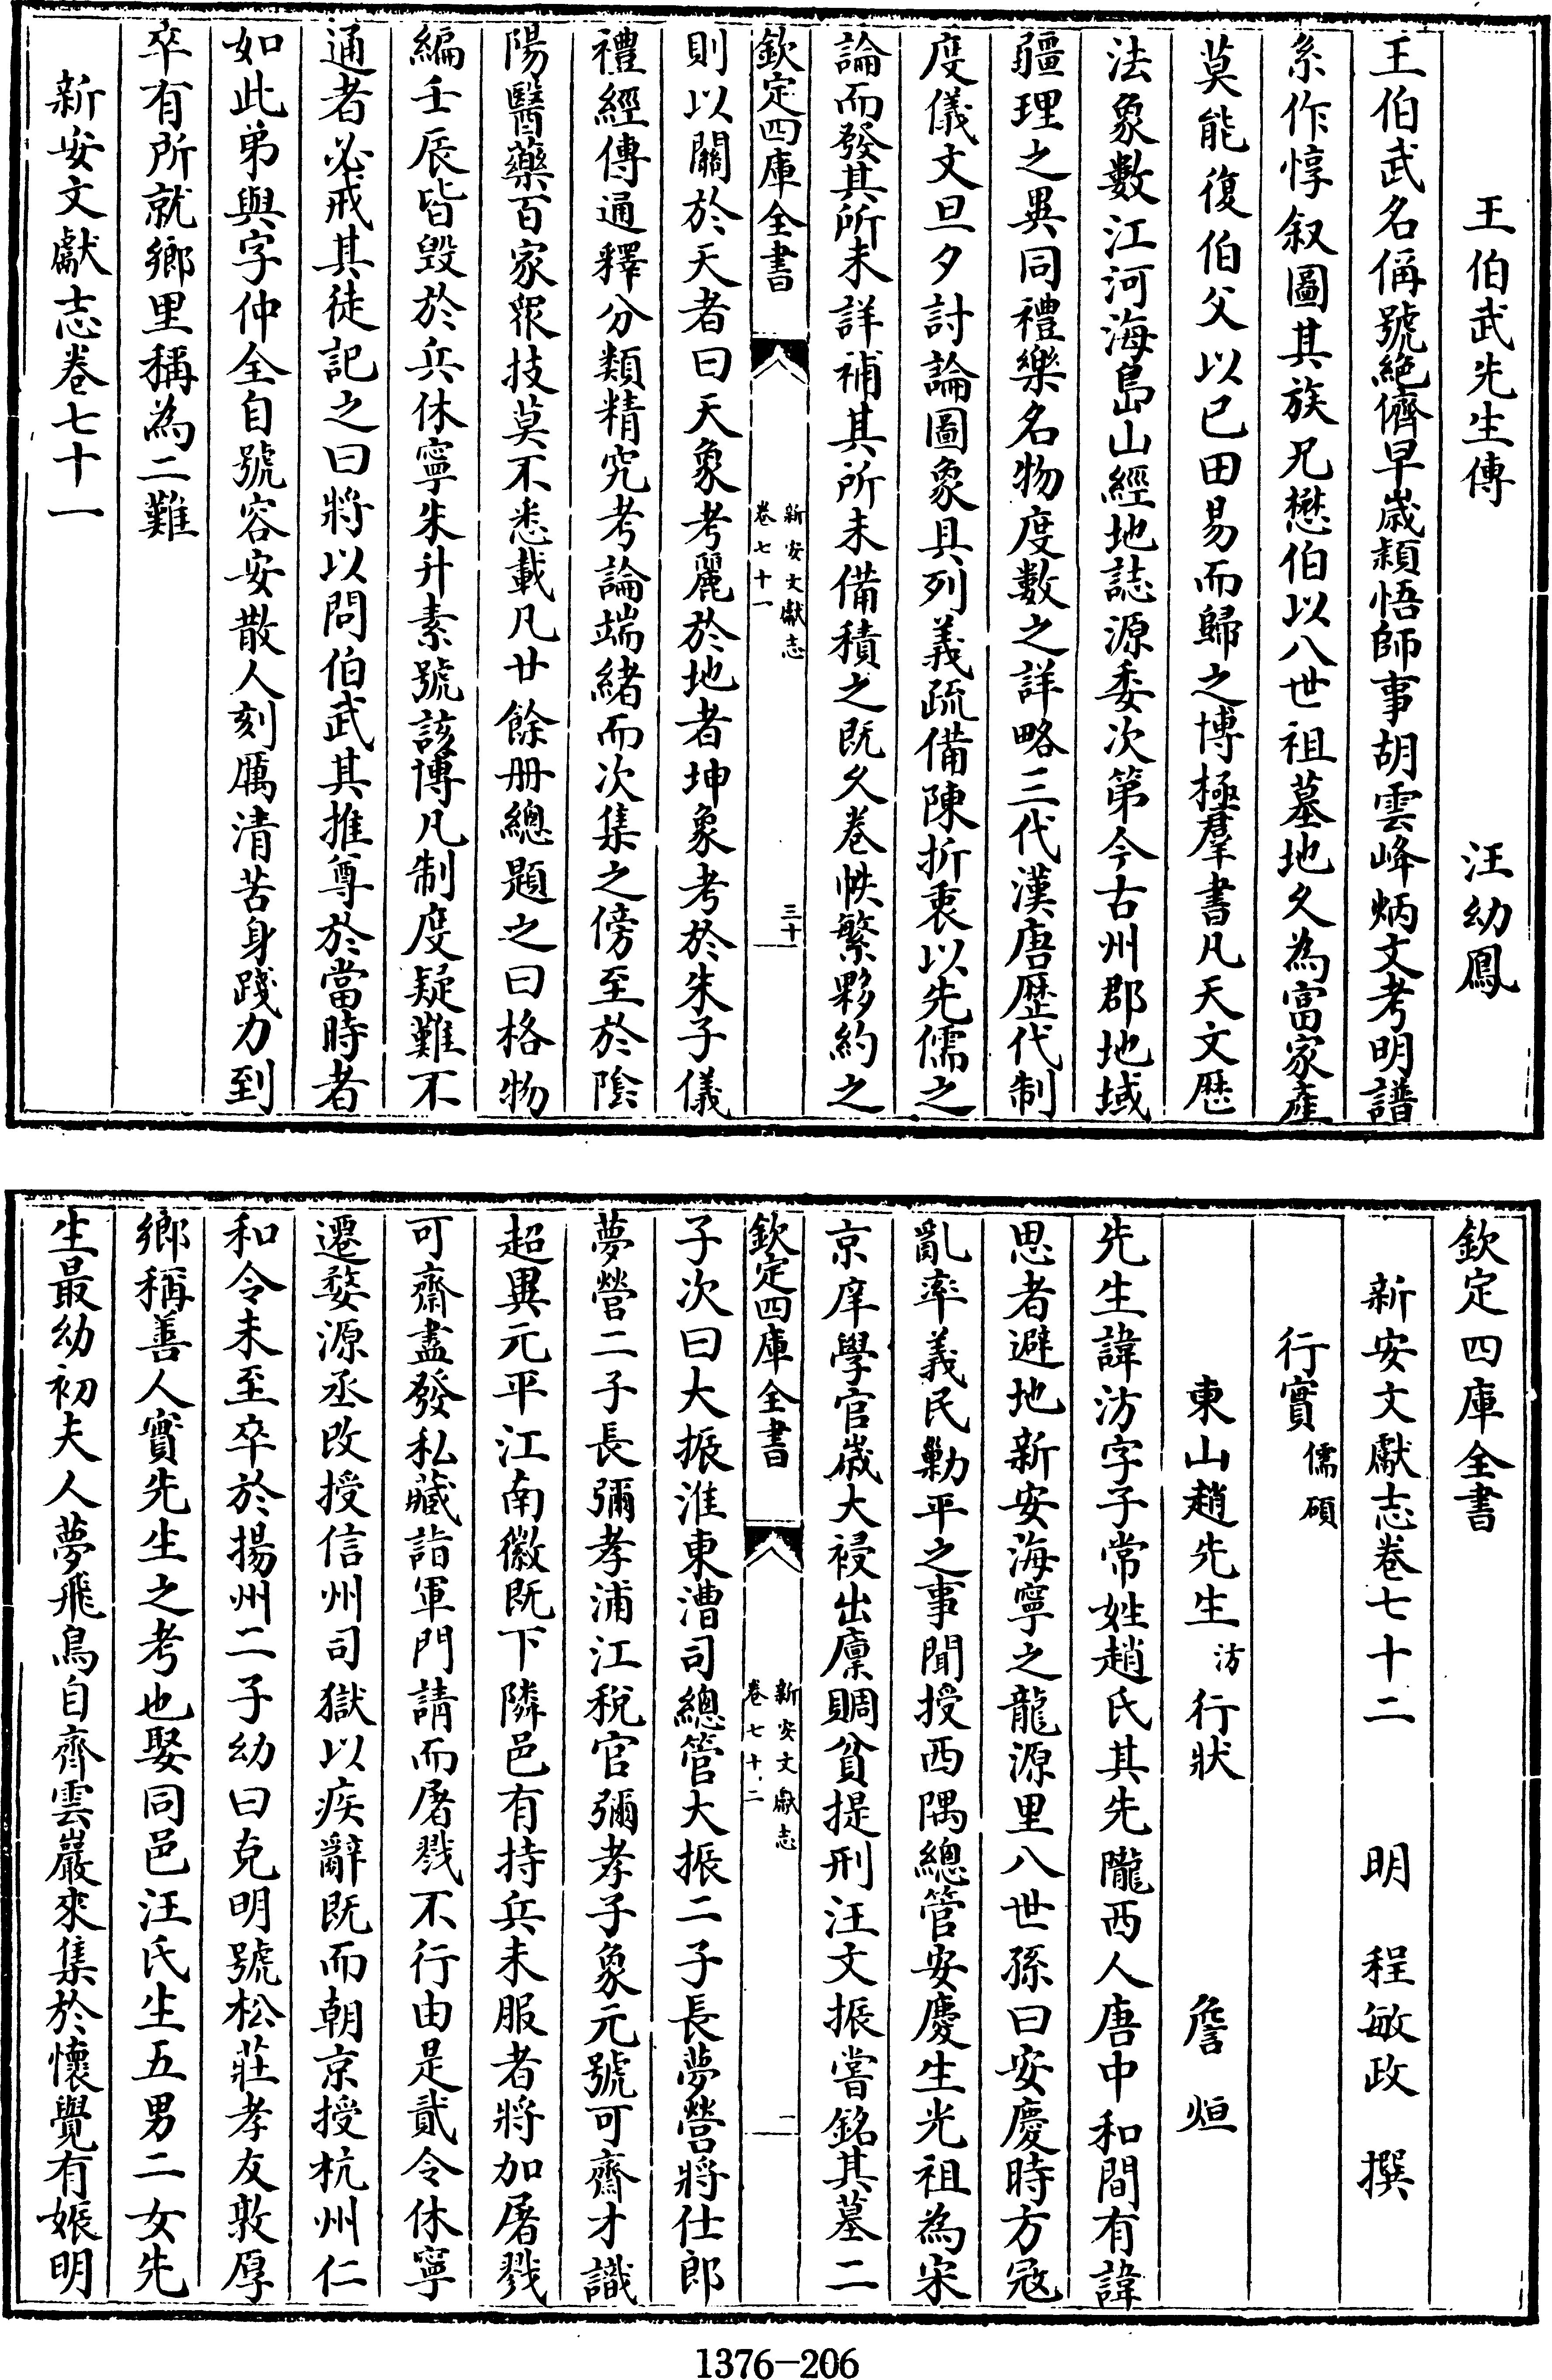 王伯武先生傳　汪幼鳳
王伯武名偁號絶儕早歳頴悟師事胡雲峰炳文考明譜
系作惇叙圖其族兄懋伯以八世祖墓地久為富家產
莫能復伯父以已田易而歸之博極羣書凡天文歴
法象數江河海島山經地誌源委次第今古州郡地域
疆理之異同禮樂名物度數之詳略三代漢唐歴代制
度儀文旦夕討論圖象具列義疏備陳折衷以先儒之
論而發其所未詳補其所未備積之既久卷帙繁夥約之
欽定四庫全書
新安文獻志
卷七十一
三十
則以關於天者曰天象考麗於地者坤象考於朱子儀
禮經傳通釋分類精究考論端緒而次集之傍至於隂
陽醫藥百家衆技莫不悉載凡廿餘册總題之曰格物
編壬辰皆毀於兵休寧朱升素號該博凡制度疑難不
通者必戒其徒記之曰將以問伯武其推尊於當時者
如此弟與字仲全自號容安散人刻厲清苦身踐力到
卒有所就鄉里稱為二難
新安文獻志卷七十一
欽定四庫全書
新安文獻志卷七十二　明　程敏政　撰
行實儒碩
東山趙先生汸行狀　詹烜
先生諱汸字子常姓趙氏其先隴西人唐中和間有諱
思者避地新安海寧之龍源里八世孫曰安慶時方冦
亂率義民勦平之事聞授西隅總管安慶生光祖為宋
京庠學官歳大祲出廩賙貧提刑汪文振嘗銘其墓二
欽定四庫全書
新安文獻志
卷七十二
一
子次曰大振淮東漕司總管大振二子長夢營將仕郎
夢營二子長彌孝浦江稅官彌孝子象元號可齋才識
超異元平江南徽既下隣邑有持兵未服者將加屠戮
可齋盡發私藏詣軍門請而屠戮不行由是貳令休寧
遷婺源丞改授信州司獄以疾辭既而朝京授杭州仁
和令未至卒於揚州二子幼曰克明號松莊孝友敦厚
鄉稱善人實先生之考也娶同邑汪氏生五男二女先
生最幼初夫人夢飛鳥自齊雲巖來集於懷覺有娠明
1376-206